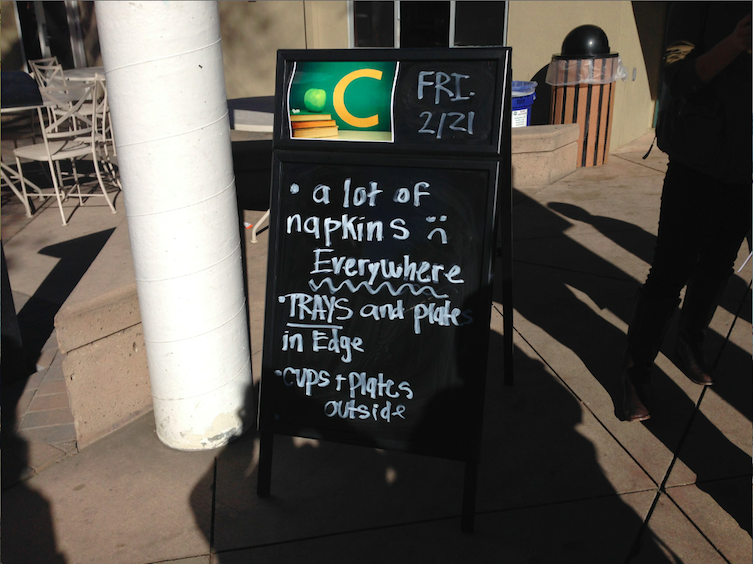 C
FRI.
2/21
• a lot of
napkins ):
Everywhere
• TRAYS and plates
in Edge
• cups + plates
outside